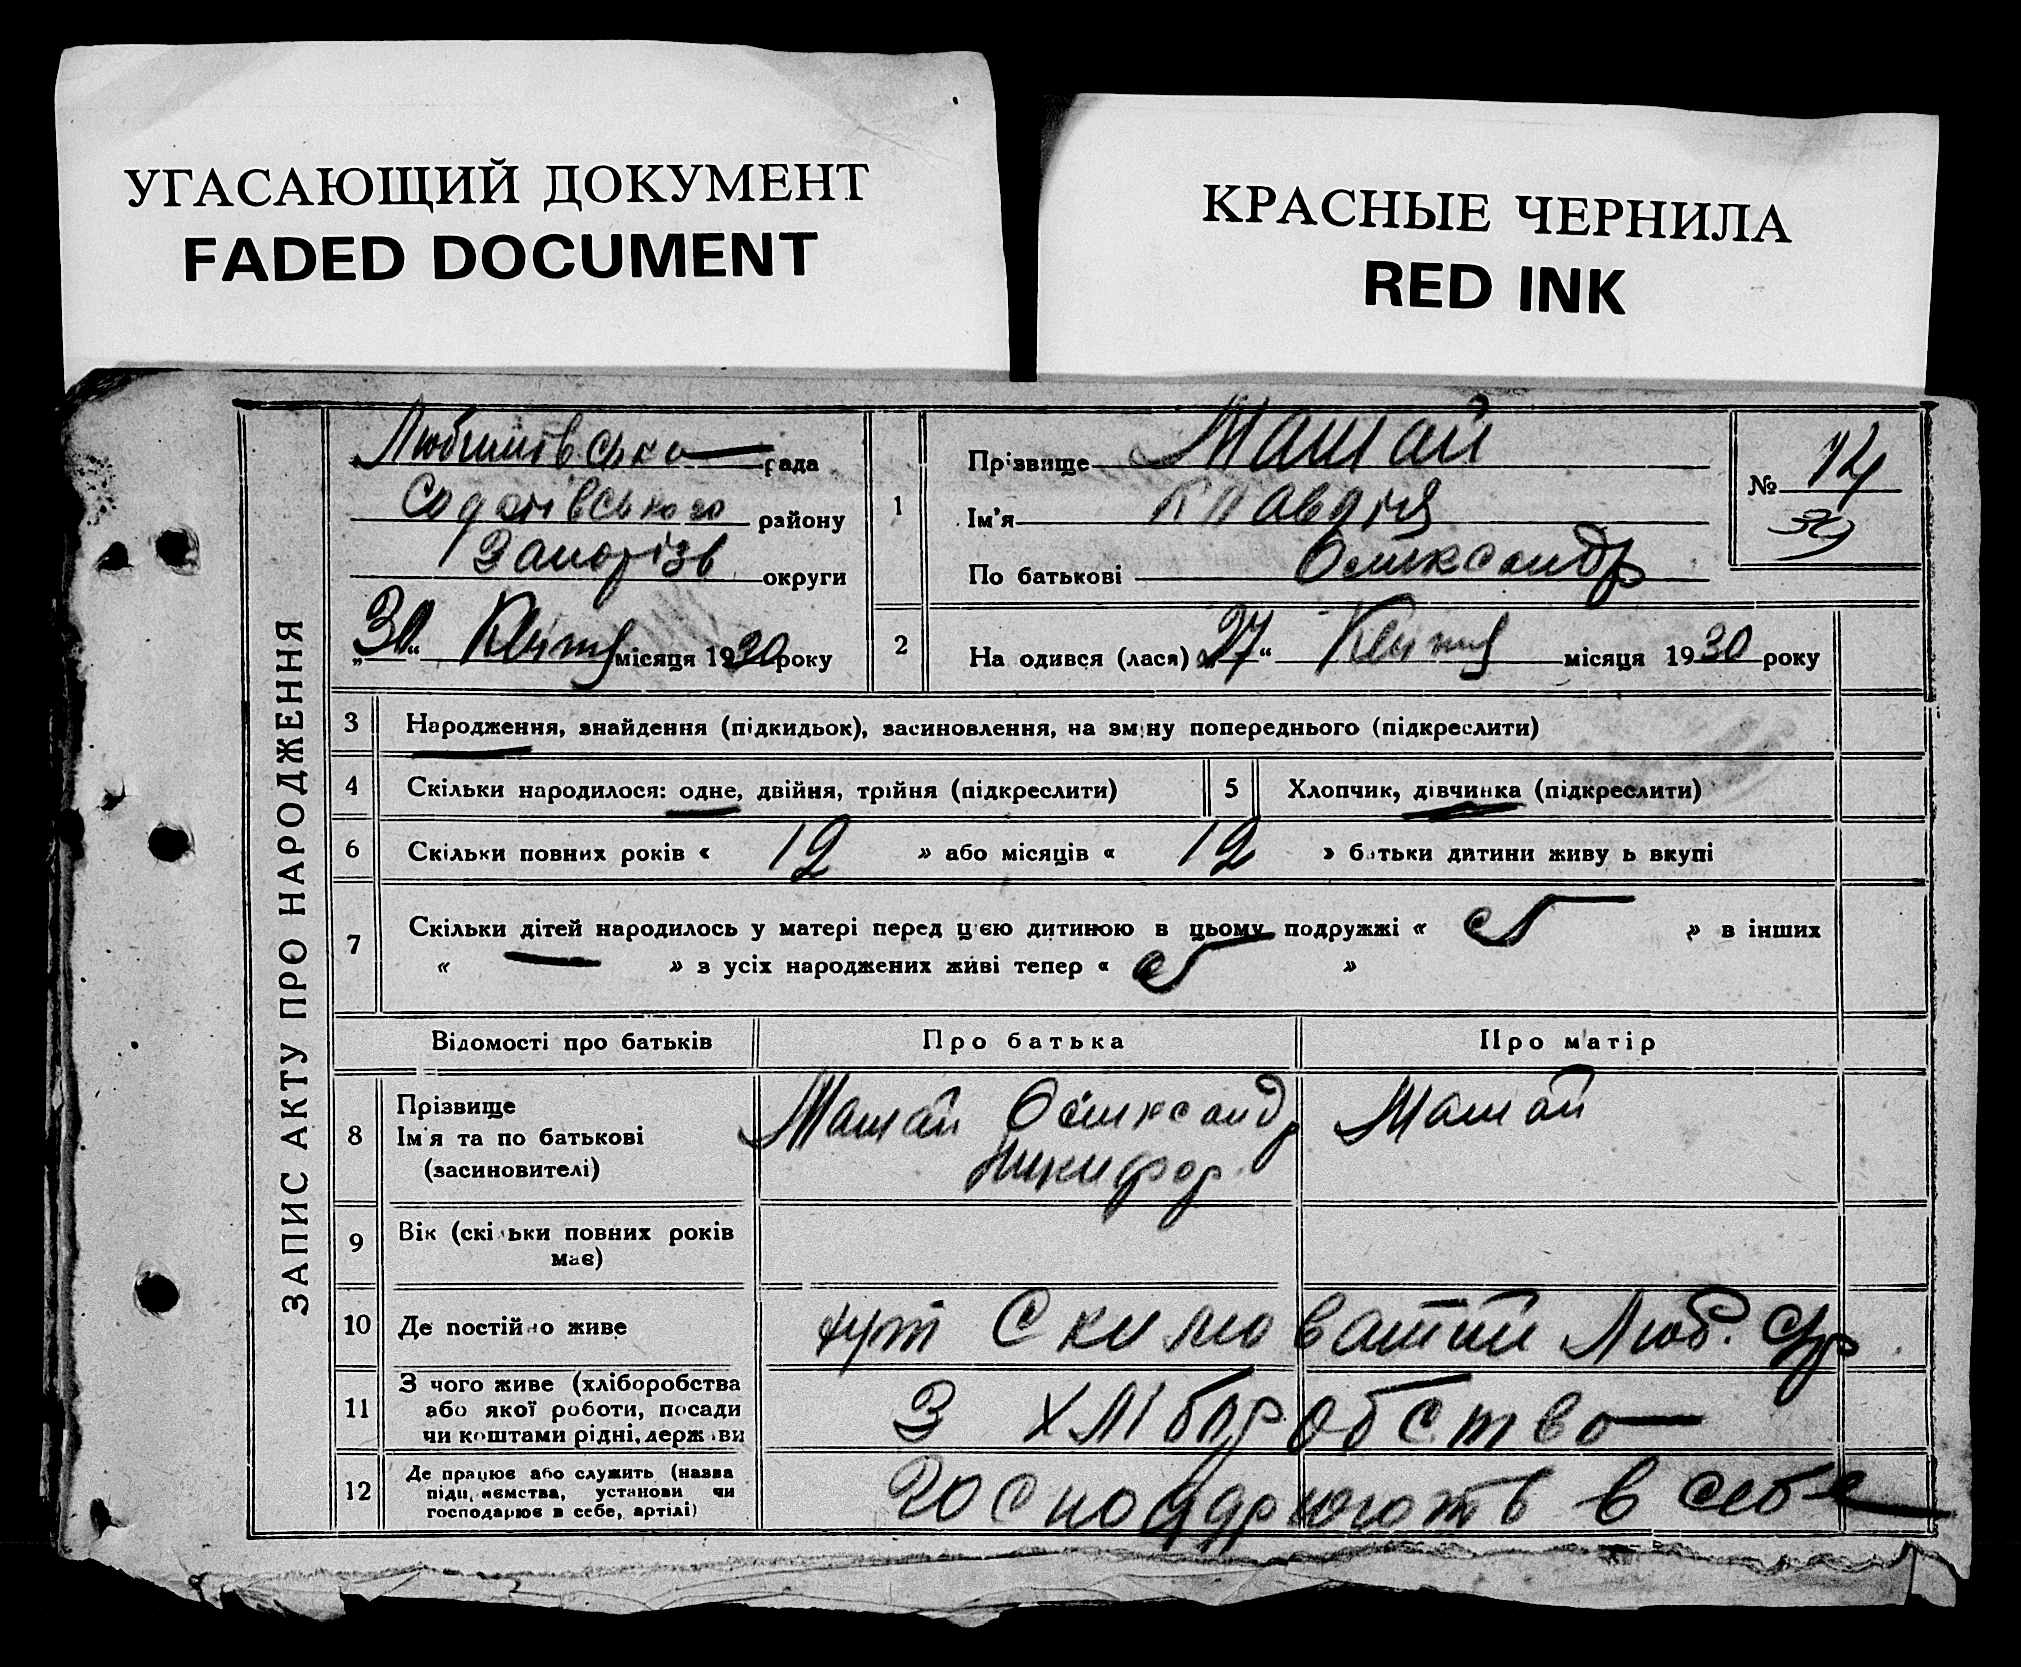 УГАСАЮЩИЙ ДОКУМЕНТ
FADED DOCUMENT
КРАСНЫЕ ЧЕРНИЛА
RED INK
ЗАПИС АКТУ ПРО НАРОДЖЕННЯ
Любимівсько рада
району
Запорізь округи
„30“ Квітня місяця 1930 року
1
Прізвище Машай
Ім'я Клавдія
По батькові Олександр
№ 14
39
2
На одився (лася) „27“ Квітня місяця 1930 року
3 Народження, знайдення (підкидьок), засиновлення, на зміну попереднього (підкреслити)
4 Скільки народилося: одне, двійня, трійня (підкреслити)
5 Хлопчик, дівчинка (підкреслити)
6 Скільки повних років « 12 » або місяців « 12 » батьки дитини живу ь вкупі
7 Скільки дітей народилось у матері перед цією дитиною в цьому подружжі « 5 » в інших
« » з усіх народжених живі тепер « 5 »
Відомості про батьків Про батька Про матір
8 Прізвище
Ім'я та по батькові
(засиновителі)
Машай Олександр
Никифор
Машай
9 Вік (скільки повних років
має)
10 Де постійно живе тут Скиловатий Люб. с/р
11 З чого живе (хліборобства
або якої роботи, посади
чи коштами рідні, держави
З хліборобство
12 Де працює або служить (назва
підп, иємства, установи чи
господарює в себе, артілі)
Господарюють в себе